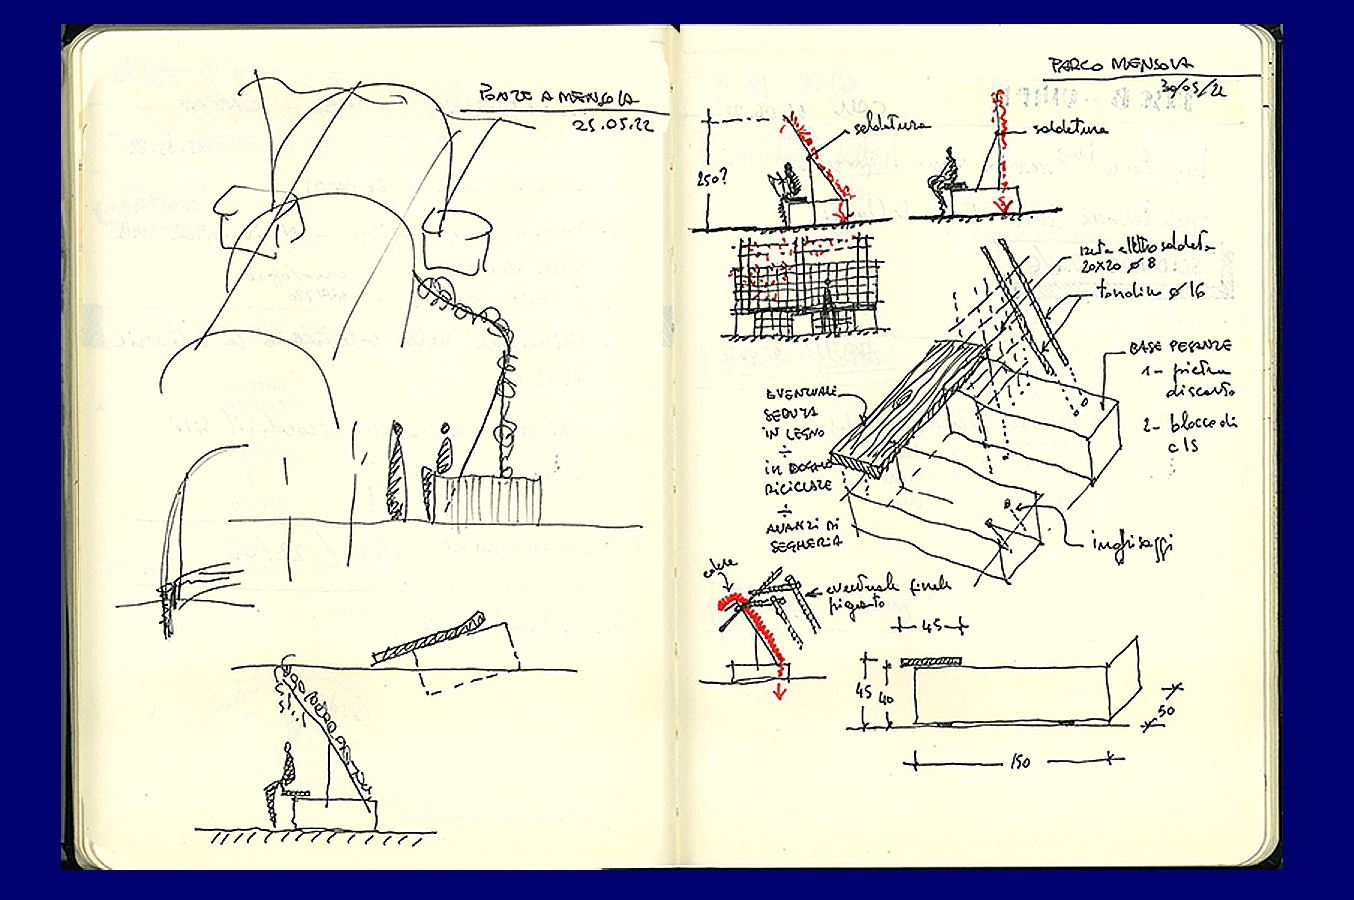 PONTE A MENSOLA
25.05.22
PARCO MENSOLA
30/05/22
saldatura
saldatura
250?
rete elettrosaldata
20x20 ø 8
tondino ø 16
BASE PESANTE
1- pietra
discarto
2- blocco di
cls
EVENTUALE
SEDUTA
IN LEGNO
÷
IN LEGNO
RICICLATE
÷
AVANZI DI
SEGHERIA
inghisaggi
edera
eventuale finale
pigento
45
45
40
50
150